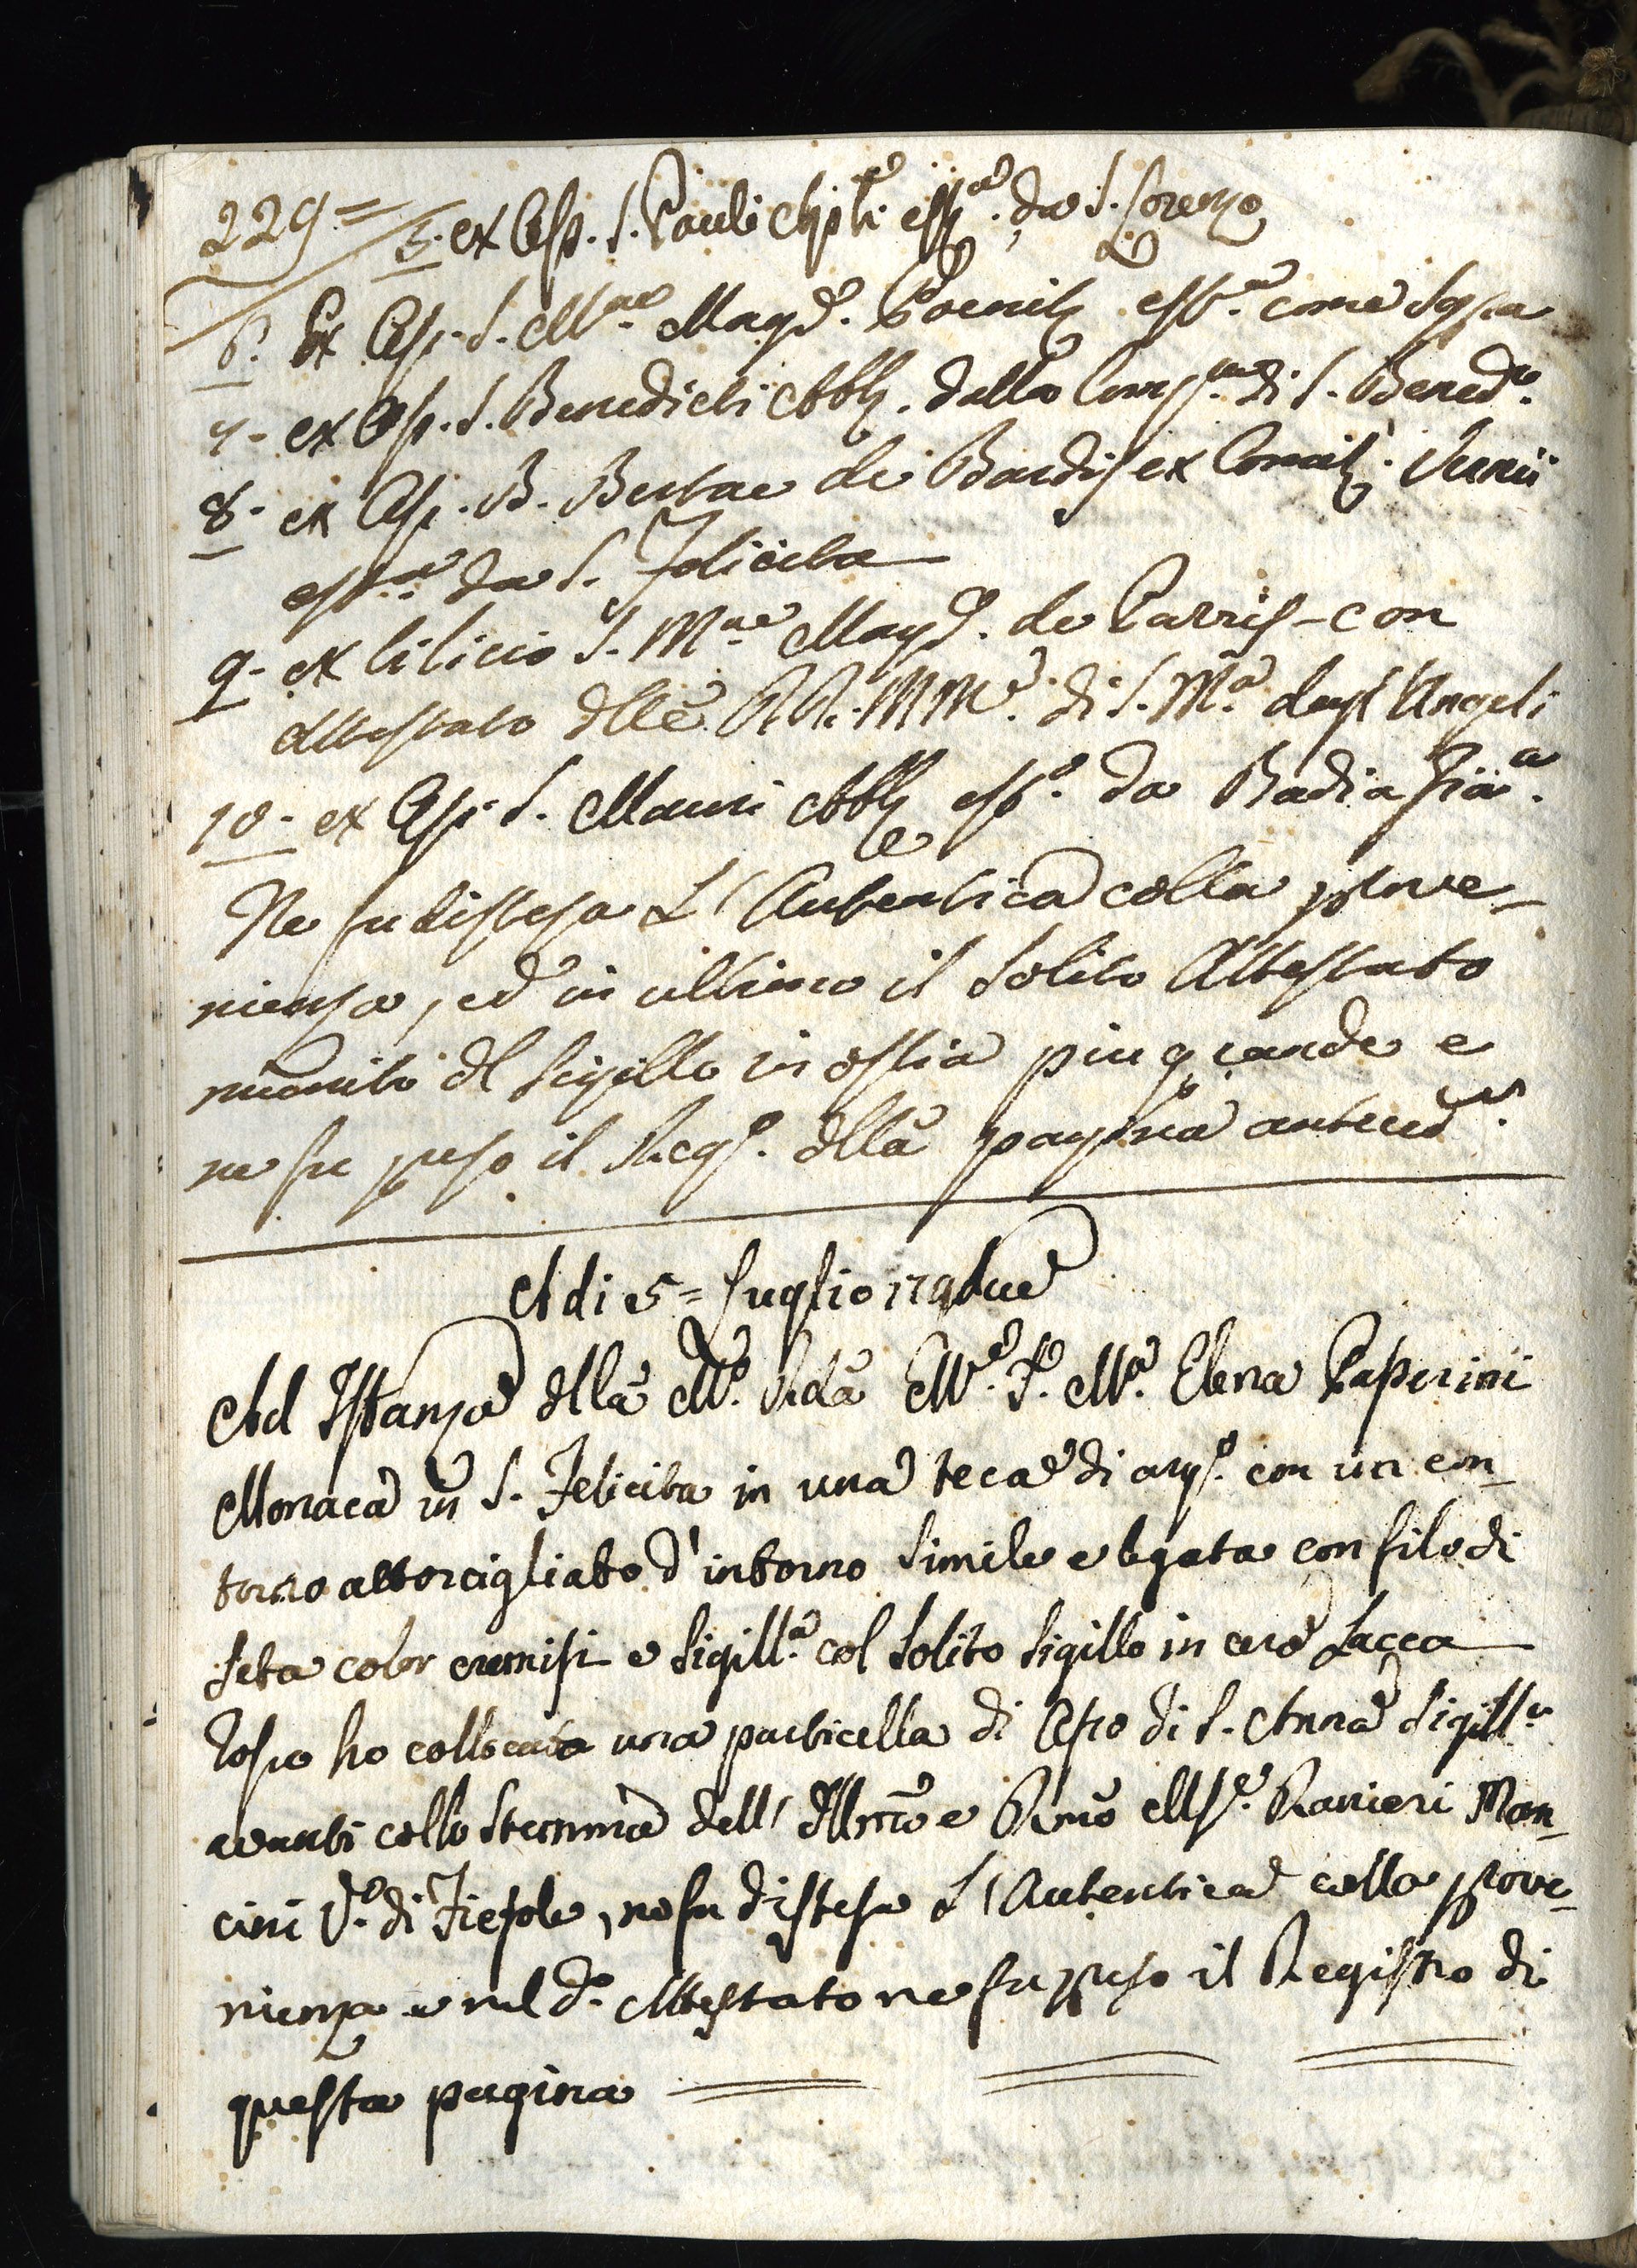 229=
5. ex Ossi. S. Pauli Apli est.ª da S. Lorenzo
6. Ex Ossi. S. M.ae Magd. Poenit. est.ª come Sopra
7- ex Ossi. S. Benedicti Abb. dalla Comp.ª di S. Bened.o
8- ex Ossi. B. Bertae de Bardis ex Comit. Vernii
est.ª da S. Felicita
9- ex Cilicio S. M.ae Magd. de Pazzis - con
Attestato dlle RR. MM.e di S. M.a degl'Angeli
10- ex Ossi S. Mauri Abb. est.o da Badia Fio.a
Ne fu distesa L'Autentica colla prove-
nienza, ed in ultimo il Solito Attestato
munito dl Sigillo in ostia piu grande e
ne fu preso il Reg.o dlla pagina anteced.e
A di 5= Luglio 179due
Ad Istanza dlla M.o Rda M.e S.r M.a Elena Paperini
Monaca in S. Felicita in una teca di arg.o con un con-
torno attorcigliato d'intorno Simile e legata con filo di
Seta color cremisi e Sigill.a col Solito Sigillo in cera Lacca
Rossa ho collocato una particella di Osso di S. Anna Sigill.a
avanti collo Stemma dell' Illmo e Rmo Msr. Ranieri Man-
cini V.o di Fiesole, ne fu distesa L'Autentica colla prove-
nienza e nel d.o Attestato ne fu preso il Registro di
questa pagina